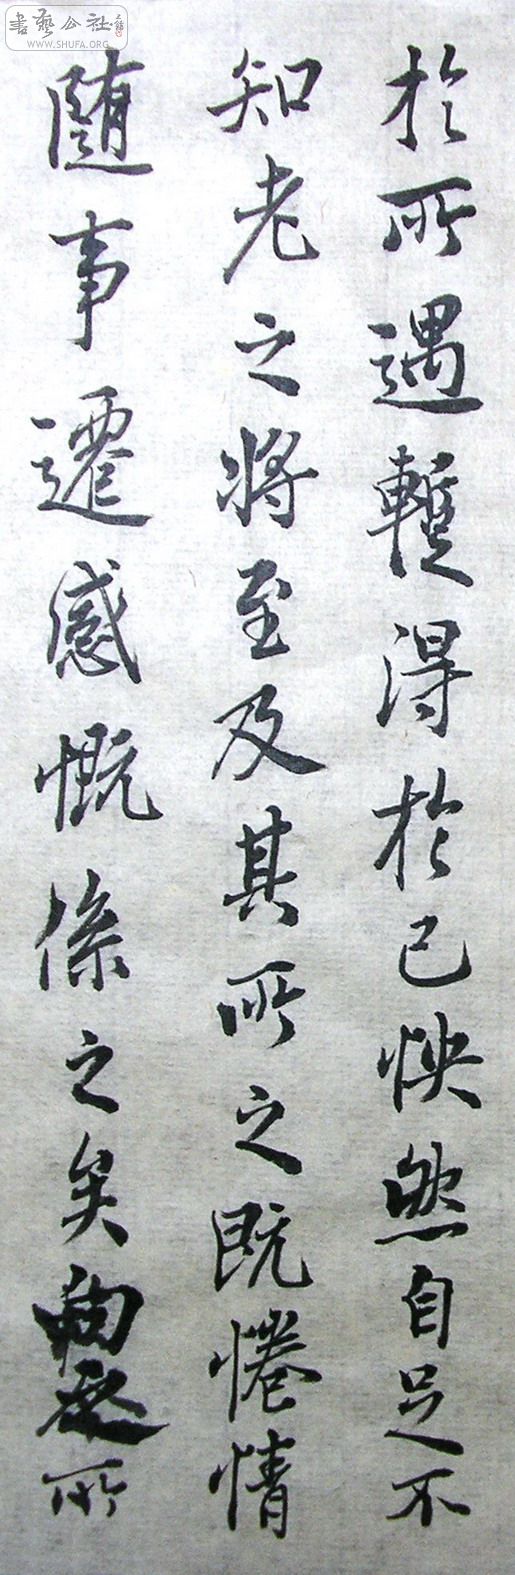 書藝公社
WWW.SHUFA.ORG
於所遇暫得於己怏然自足不
知老之將至及其所之既惓情
隨事遷感慨係之矣向之所